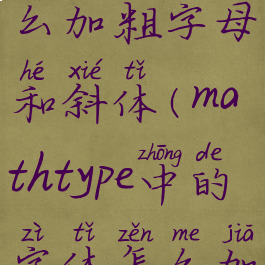 么加粗字母
hé xié tǐ
和斜体(ma
zhōng de
thtype中的
zì tǐ zěn me jiā
字体怎么加